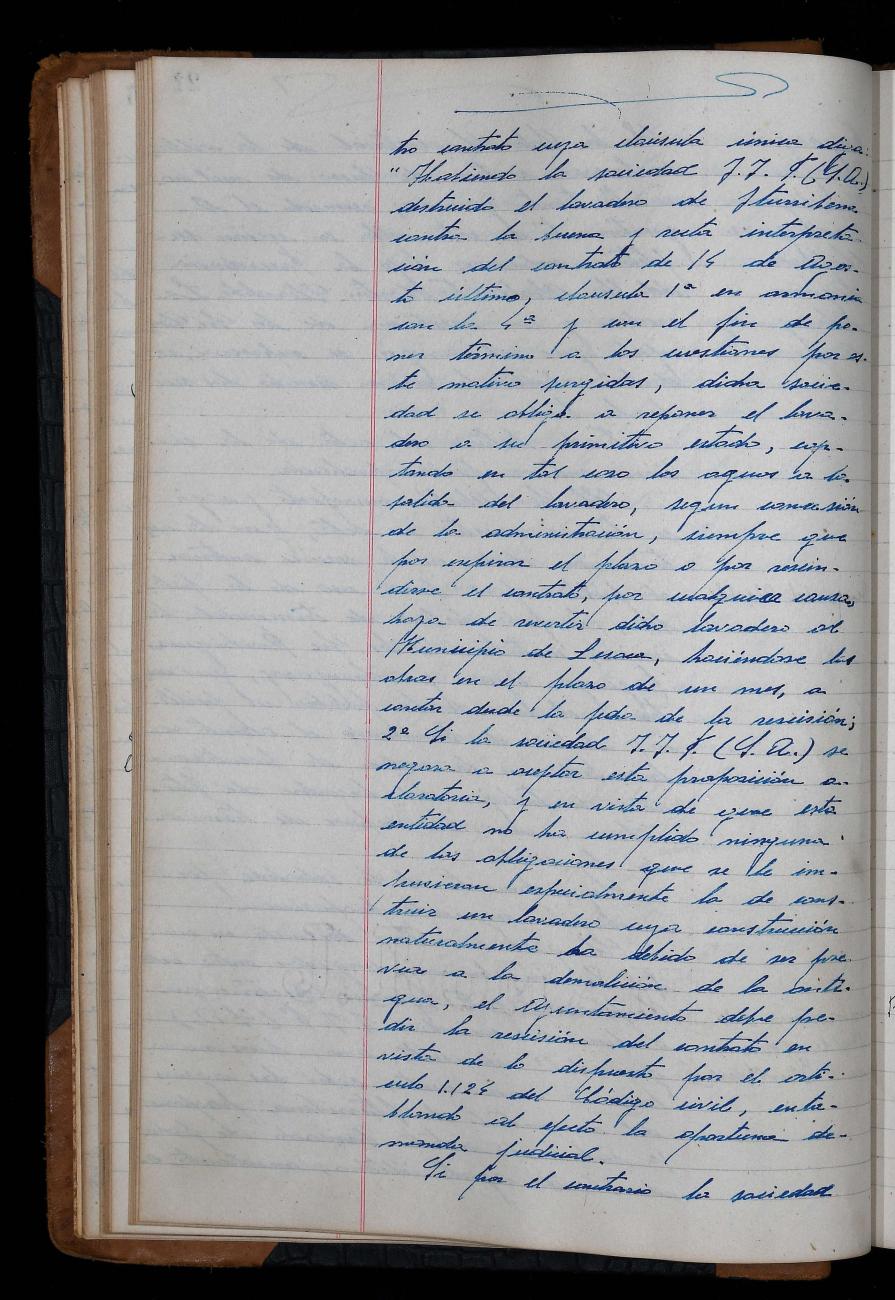 tro contrato cuya claúsula única diga:
"Habiendo la sociedad J. J. F. (S.A.)
destruido el lavadero de Iturribena
contra la buena y recta interpreta-
ción del contrato de 14 de Agos-
to último, claúsula 1ª en armonia
con la 4ª y con el fin de po-
ner término a las cuestiones por es-
te motivo surgidas, dicha socie-
dad se obliga a reponer el lava-
dero a su primitivo estado, cap-
tando en tal caso las aguas a la
salida del lavadero, segun concesión
de la administración, siempre que
por espirar el plazo o por rescin-
dirse el contrato, por cualquiera causa,
haya de revertir dicho lavadero al
Municipio de Lesaca, haciéndose las
obras en el plazo de un mes, a
contar desde la fecha de la rescisión;
2º Si la sociedad J. J. F. (S. A.) se
negara a aceptar esta proposición a-
claratoria, y en vista de que esta
entidad no ha cumplido ninguna
de las obligaciones que se le im-
pusieron especialmente la de cons-
truir un lavadero cuya construcción
naturalmente ha debido de ser pre-
via a la demolición de la anti-
gua, el Ayuntamiento debe pe-
dir la rescisión del contrato en
vista de lo dispuesto por el artí-
culo 1.124 del Código civil, enta-
blando al efecto la oportuna de-
manda judicial.
Si por el contrario la sociedad